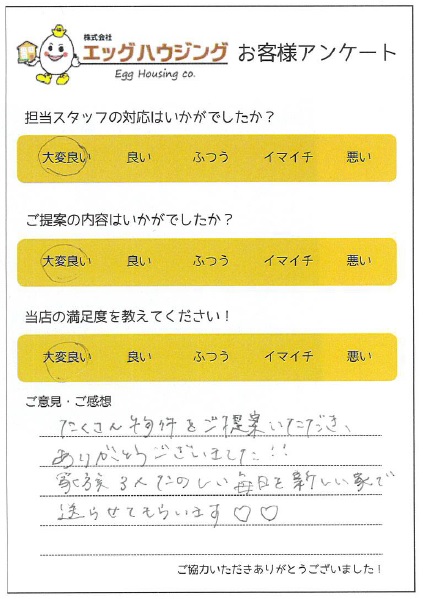 株式会社
エッグハウジング お客様アンケート
Egg Housing co.
担当スタッフの対応はいかがでしたか？
大変良い 良い ふつう イマイチ 悪い
ご提案の内容はいかがでしたか？
大変良い 良い ふつう イマイチ 悪い
当店の満足度を教えてください！
大変良い 良い ふつう イマイチ 悪い
ご意見・ご感想
たくさん物件をご提案いただき、
ありがとうございました!!
家族3人たのしい毎日を新しい家で
送らせてもらいます♡♡
ご協力いただきありがとうございました！